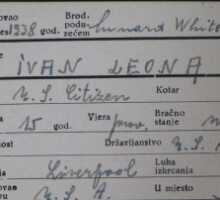 ovao
es 1938 god.
Brod.
podu-
zećem
Cunard White
IVAN LEONA
U.S. Citizen
Kotar
a 15 god.
Vjera prav.
Bračno
stanje
nost
Državljanstvo U.S.
Liverpool
Luka
izkrcanja
ovao
U.S.A.
U mjesto